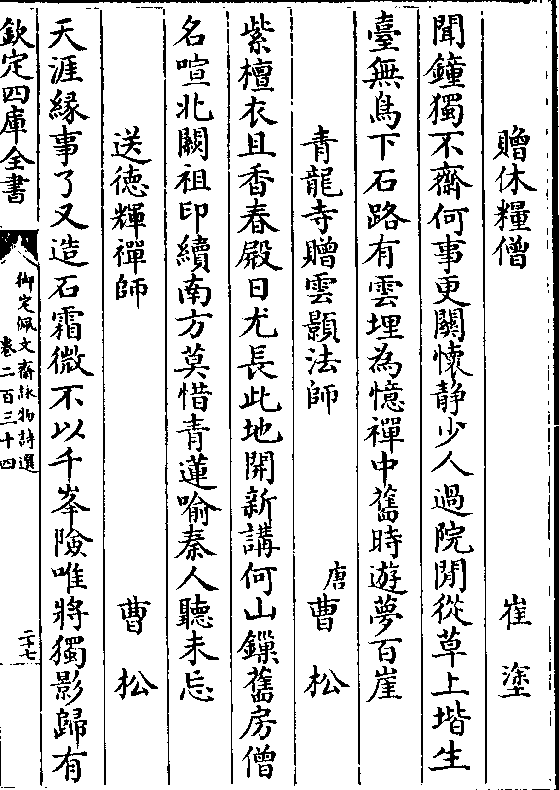 贈休糧僧 崔塗
聞鐘獨不齋何事更關懷静少人過院閒從草上堦生
臺無鳥下石路有雲埋為憶禪中舊時遊夢百崖
青龍寺贈雲顥法師 唐曹松
紫檀衣且香春殿日尤長此地開新講何山鏁舊房僧
名喧北闕祖印續南方莫惜青蓮喻秦人聽未忘
送德輝禪師 曹松
天涯緣事了又造石霜微不以千峯險唯將獨影歸有
欽定四庫全書
御定佩文齋詠物詩選
卷二百三十四
二十七